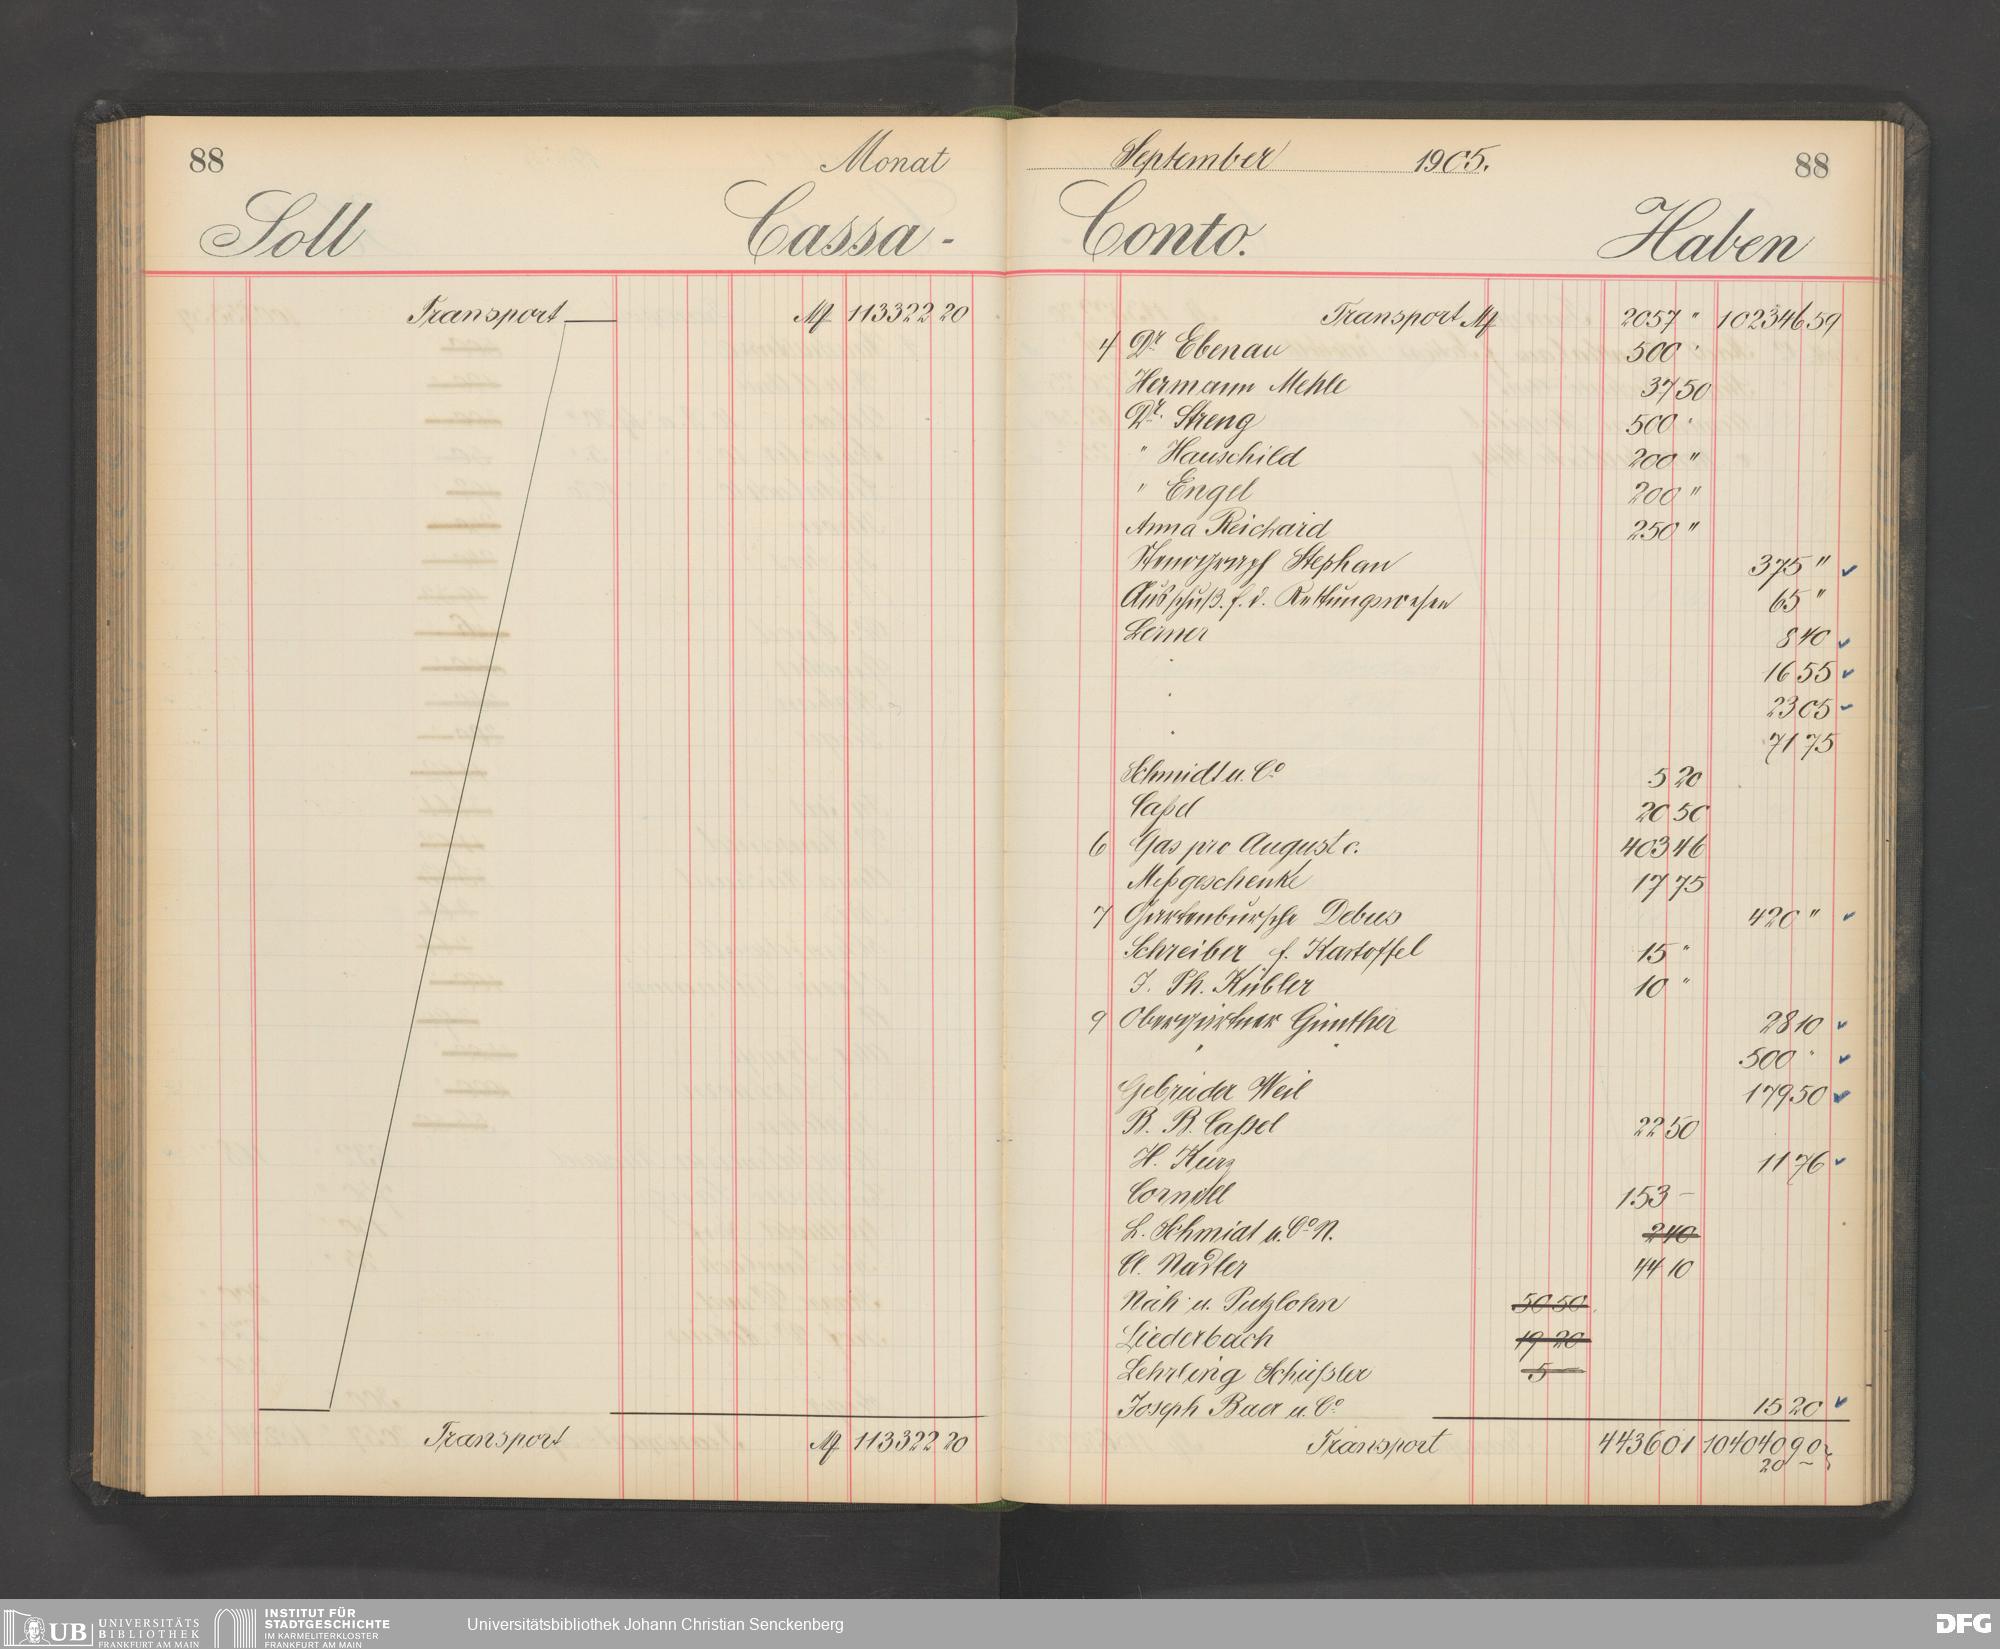 88
Monat
Soll
Cassa-
Transport M 113322 20
Transport M 113322 20
September 1905.
88
Conto.
Haben
Transport M 2057 " 102346 59
4 Dr Ebenau 500 "
Hermann Mehle 37 50
Dr. Streng 500 "
" Hauschild 200 "
" Engel 200 "
Anna Reichard 250 "
Stenograph Stephan 375 "
Ausschuß. f. d. Rettungswesen 65 "
Lerner 8 40
" 16 55
" 23 05
" 71 75
Schmidt u. Co 5 20
Caßel 20 50
6 Gas pro August c. 403 46
Meßgeschenke 17 75
7 Gartenbursche Debus 420 "
Schreiber f. Kartoffel 15 "
J. Ph. Kübler 10 "
9 Obergärtner Günther 28 10
" " 500 "
Gebrüder Weil 179 50
B. B. Caßel 22 50
H. Kurz 11 76
Cornill 153 –
L. Schmidt u. Co N. 2 40
Cl. Nadler 44 10
Näh- u. Putzlohn 50 50
Liederbach 19 20
Lehrling Schüßler 5 –
Joseph Baer u. Co 15 20
Transport 4436 01 104040 90
20
UB UNIVERSITÄTS BIBLIOTHEK FRANKFURT AM MAIN
INSTITUT FÜR STADTGESCHICHTE IM KARMELITERKLOSTER FRANKFURT AM MAIN
Universitätsbibliothek Johann Christian Senckenberg
DFG